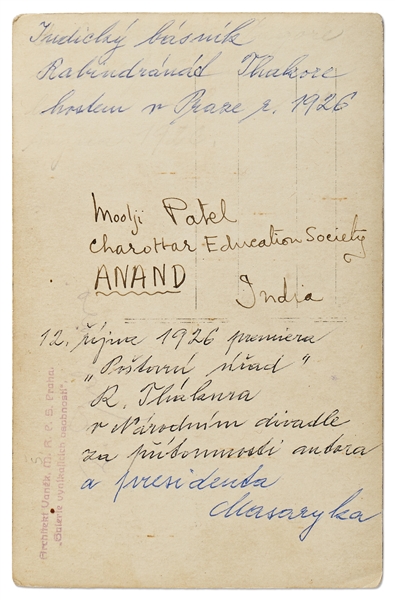 Indický básník
Rabindránát Thakore
hostem v Praze r. 1926
Moolji Patel
Charottar Education Society
ANAND
India
12. října 1926 premiera
„Poštovní úřad"
R. Thákura
v Národním divadle
za přítomnosti autora
a presidenta
Masaryka
Architekt Vaněk, M. A. P. S. Praha.
„Galerie vynikajících osobností".